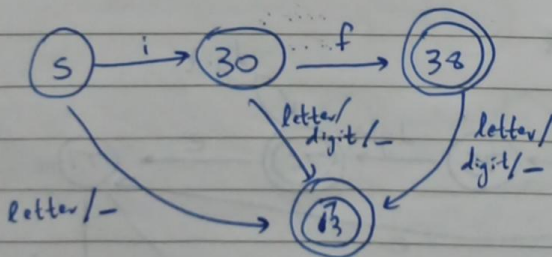 i
f
S
30
38
letter/
digit/_
letter/
digit/_
letter/_
13